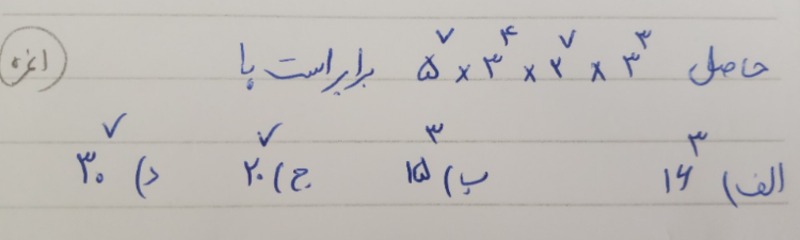 حاصل ۵^۷ × ۳^۴ × ۲^۷ × ۳^۳ برابر است با
الف) ۱۶^۳ ب) ۱۵^۳ ج) ۲۰^۷ د) ۳۰^۷